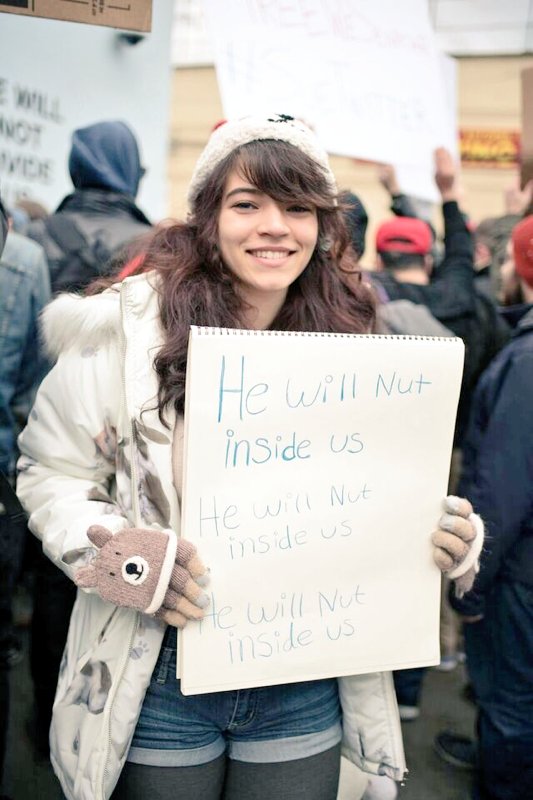 E WILL
NOT
VIDE
He will Nut
inside us
He will Nut
inside us
He will Nut
inside us